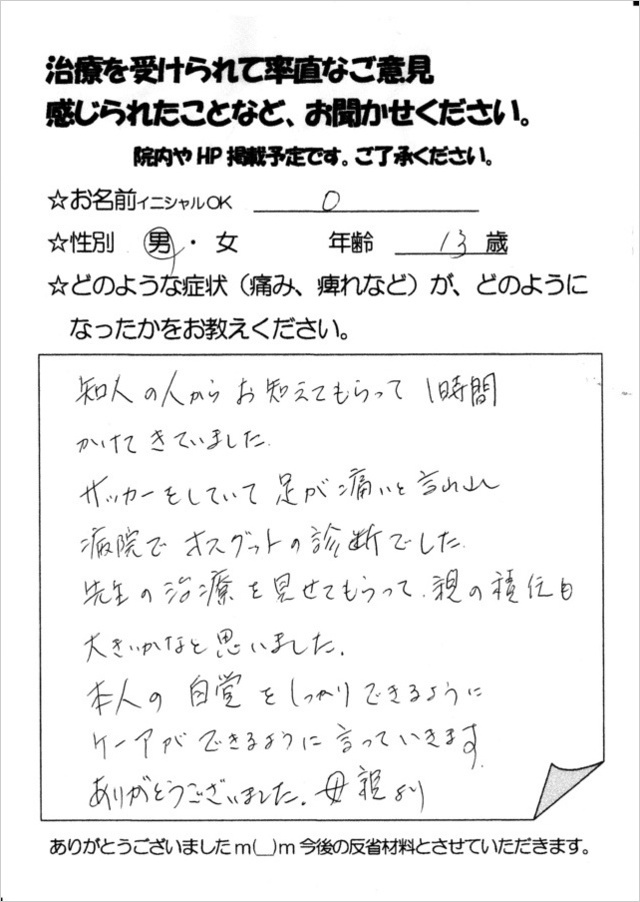 治療を受けられて率直なご意見
感じられたことなど、お聞かせください。
院内やHP掲載予定です。ご了承ください。
☆お名前イニシャルOK O
☆性別 男・女 年齢 13歳
☆どのような症状（痛み、痺れなど）が、どのように
なったかをお教えください。
知人の人からお知えてもらって 1時間
かけてきていました.
サッカーをしていて足が痛いと言われ
病院でオスグットの診断でした.
先生の治療を見せてもらって.親の責任も
大きいかなと思いました.
本人の自覚をしっかりできるように
ケーアができるように言っていきます.
ありがとうございました.母親より
ありがとうございましたm(__)m今後の反省材料とさせていただきます。